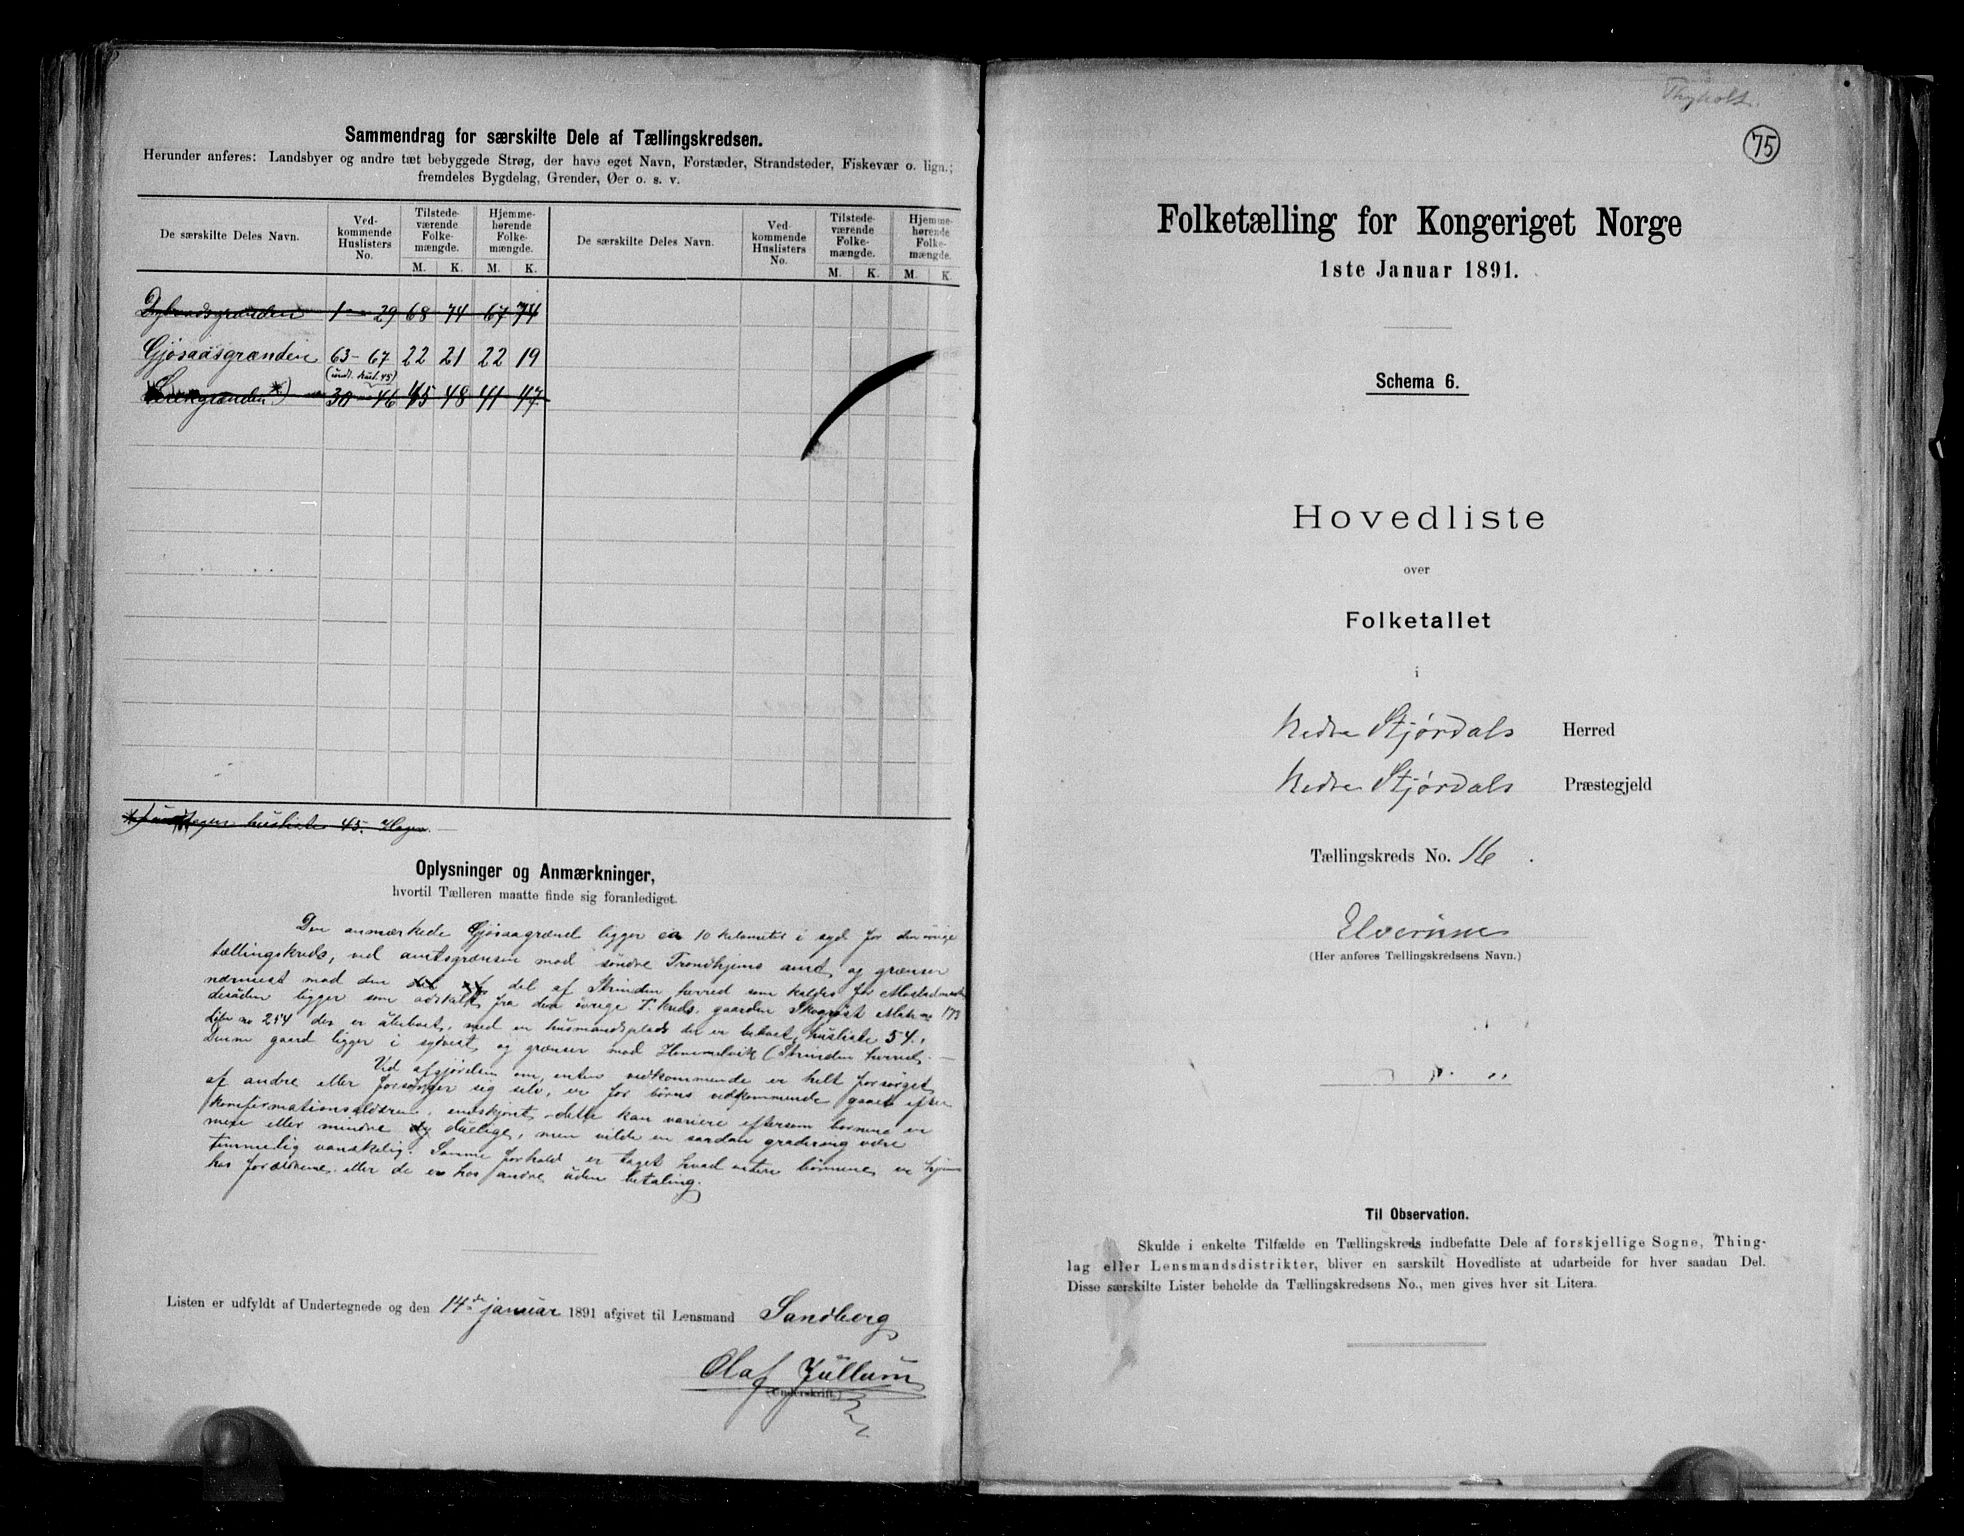 Sammendrag for særskilte Dele af Tællingskredsen.
Herunder anføres: Landsbyer og andre tæt bebyggede Strøg, der have eget Navn, Forstæder, Strandsteder, Fiskevær o. lign.;
fremdeles Bygdelag, Grender, Øer o. s. v.
De særskilte Deles Navn. Ved-kommende Huslisters No. Tilstede-værende Folke-mængde. Hjemme-hørende Folke-mængde. De særskilte Deles Navn. Ved-kommende Huslisters No. Tilstede-værende Folke-mængde. Hjemme-hørende Folke-mængde.
M. K. M. K. M. K. M. K.
1 - 29 68 74 67 74
Gjøsaasgrænden 63 - 67 22 21 22 19
30 - 46 45 48 41 47
husliste 45. Hagen.
Oplysninger og Anmærkninger,
hvortil Tælleren maatte finde sig foranlediget.
Den anmærkede Gjøsaagrænd ligger ca 10 kilometer i syd for den øvrige
tællingskreds, ved amtsgrænsen mod søndre Trondhjems amt og grænser
nærmest mod den del af Strinden herred som kaldes for
desuden ligger som adskilt fra den øvrige T. kreds. gaarden Matr no 173
Løbe no 254 der er ubeboet, med en husmandsplads der er beboet, husliste 54.
Denne gaard ligger i sydvest og grænser mod Hommelvik (Strinden herred.
Ved afgjørelsen om, enten vedkommende er helt forsørget
af andre eller forsørger sig selv, er for børns vedkommende gaaet efter
konfirmationsalderen, endskjønt dette kan variere eftersom børnene er
mere eller mindre duelige, men vilde en saadan gradering være
temmelig vanskelig. Samme forhold er taget hvad enten børnene er hjemme
hos forældrene eller de er hos andre uden betaling.
Listen er udfyldt af Undertegnede og den 14de januar 1891 afgivet til Lensmand Sandberg
Olaf Jullum
(Underskrift.)
75
Folketælling for Kongeriget Norge
1ste Januar 1891.
Schema 6.
Hovedliste
over
Folketallet
i
Nedre Stjørdals Herred
Nedre Stjørdals Præstegjeld
Tællingskreds No. 16.
Elverum
(Her anføres Tællingskredsens Navn.)
Til Observation.
Skulde i enkelte Tilfælde en Tællingskreds indbefatte Dele af forskjellige Sogne, Thing-
lag eller Lensmandsdistrikter, bliver en særskilt Hovedliste at udarbeide for hver saadan Del.
Disse særskilte Lister beholde da Tællingskredsens No., men gives hver sit Litera.